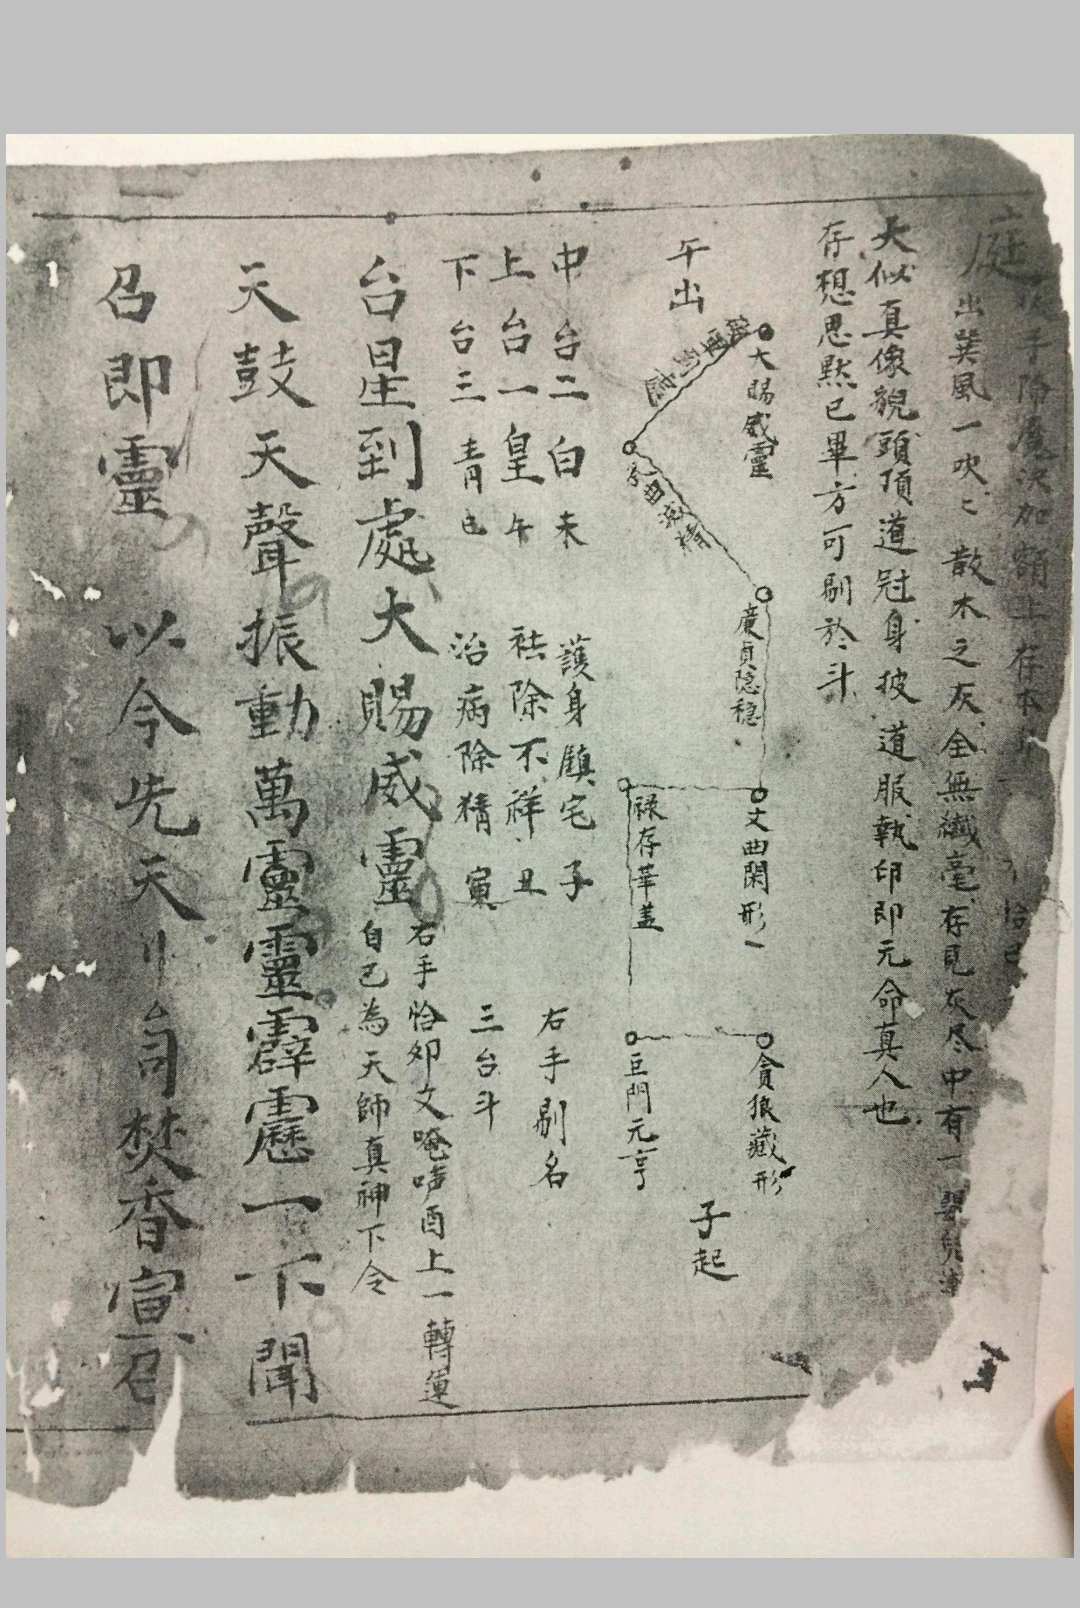 庭
手除魔決加額上存本
恰已
出巽風一吹匕散木之灰全無纖毫存見灰尽中有一嬰兒
大似真像貌頭頂道冠身披道服執印即元命真人也
存想思黙已畢方可剔於斗
大賜威靈
廣貞隠稳
文曲閑形一
貪狼藏形
午出
禄存華盖
巨門元亨
子起
中台二白未 護身鎮宅子 右手剔名
上台一皇午 祛除不祥丑
下台三青巳 治病除精寅 三台斗
台星到處大賜威靈
右手恰夘文唵吽酉上一轉運
自己為天師真神下令
天鼓天聲振動萬靈靈霹靂一下聞
召即靈 以今先天
焚香宣召